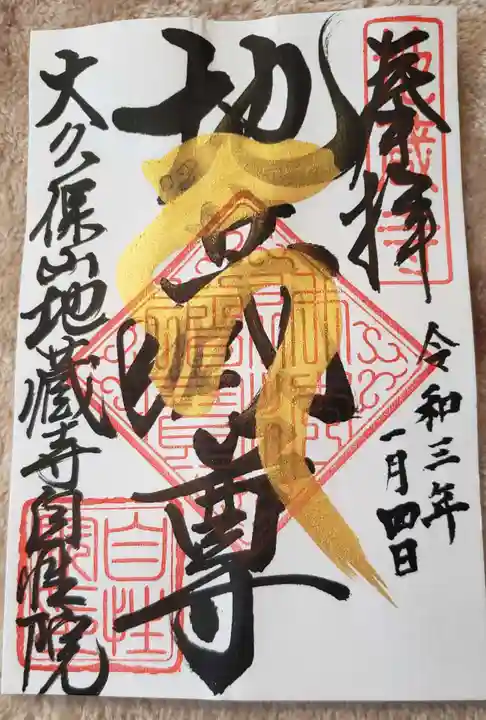 奉拝
令和三年
一月四日
地蔵尊
大久保山地蔵寺自性院
自性